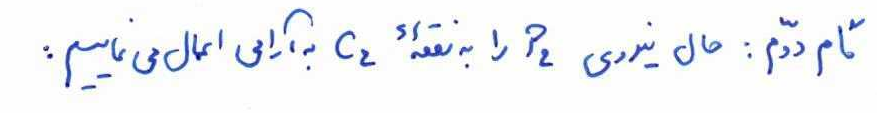 گام دوّم : حال نیروی P₂ را به نقطهٔ C₂ به آرامی اعمال می نماییم :